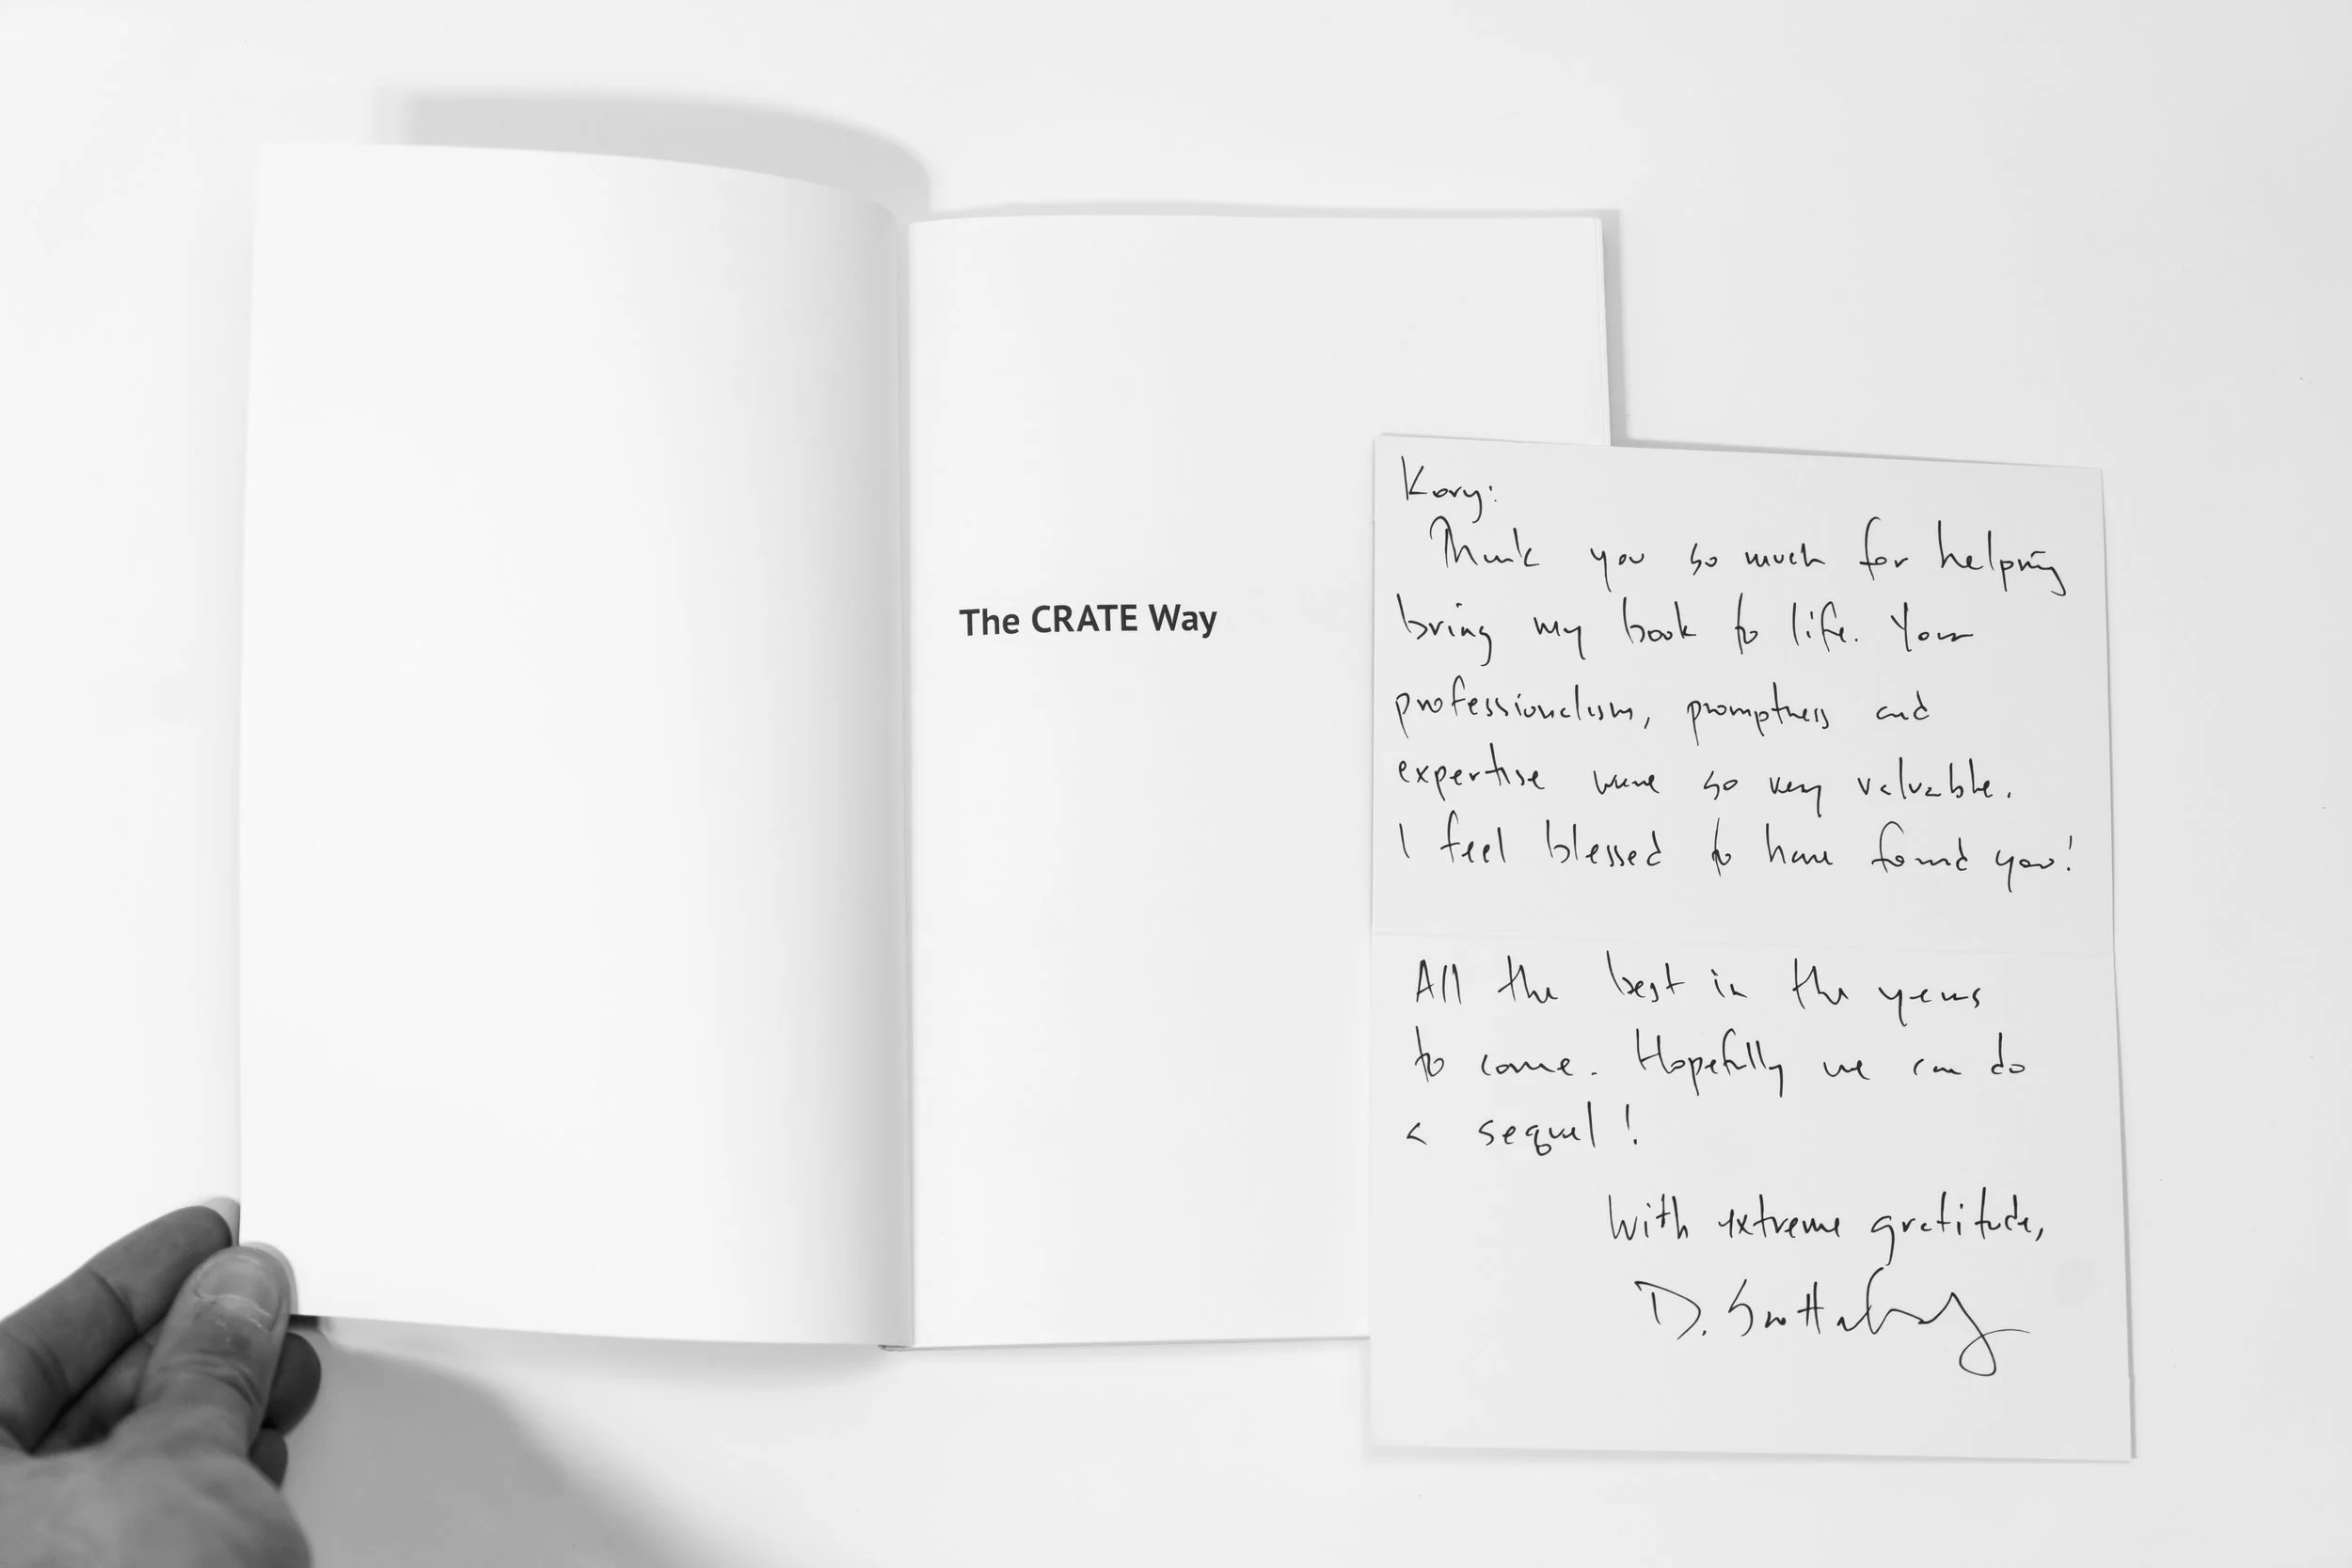 The CRATE Way
Kory:
Thank you so much for helping
bring my book to life. Your
professionalism, promptness and
expertise were so very valuable.
I feel blessed to have found you!
All the best in the years
to come. Hopefully we can do
a sequel!
With extreme gratitude,
D.